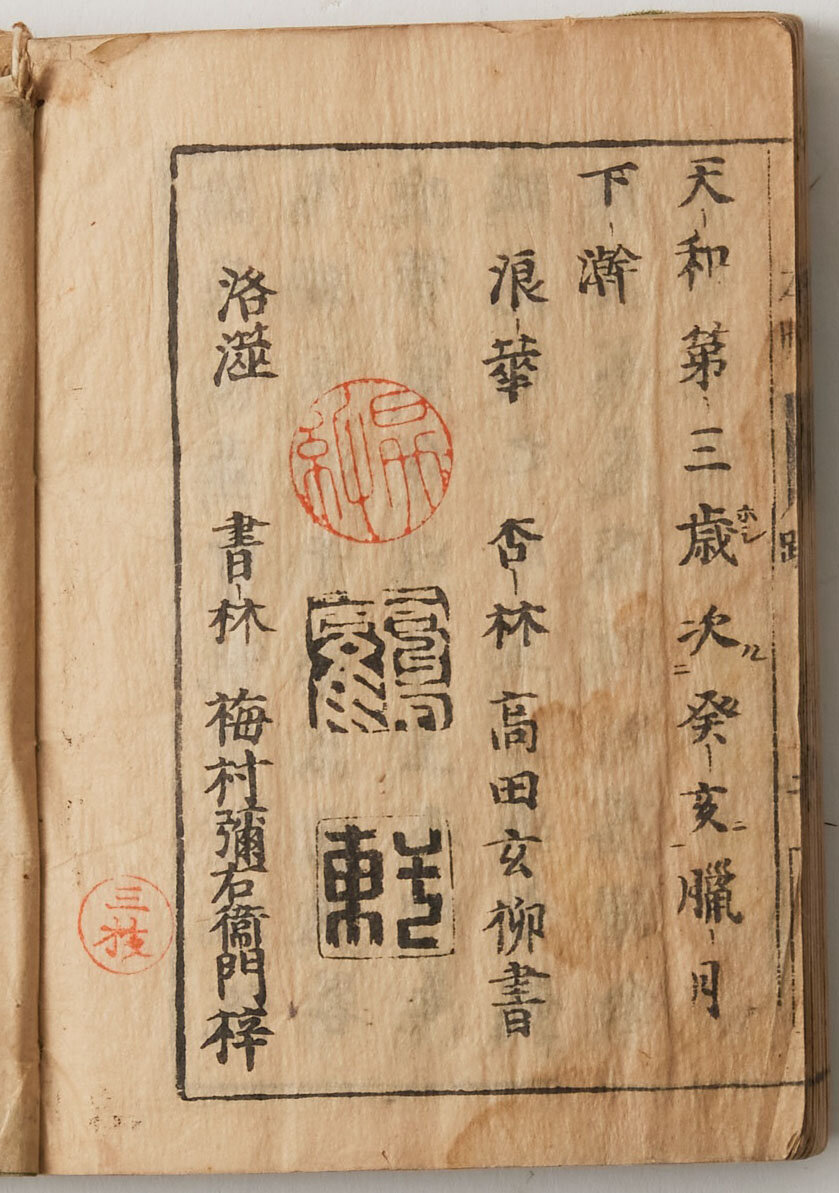 天和第三歳次癸亥臘月
ホシ
ル
ニ
ニ
下澣
浪華 杏林 高田玄柳書
洛澨 書林 梅村彌右衞門梓
三枝